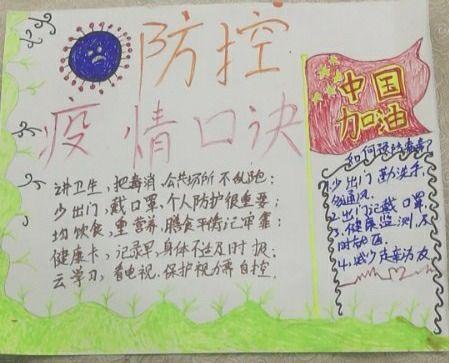 防控
疫情口诀
中国
加油
讲卫生,把毒消,公共场所不乱跑;
少出门,戴口罩,个人防护很重要;
均饮食,重营养,膳食平衡记牢靠;
健康卡,记录早,身体不适及时报。
云学习,看电视,保护视力靠自控。
如何预防病毒?
1.少出门勤洗手,
多通风。
2.出门记戴口罩。
3.健康监测,及
时
4.减少走亲访友